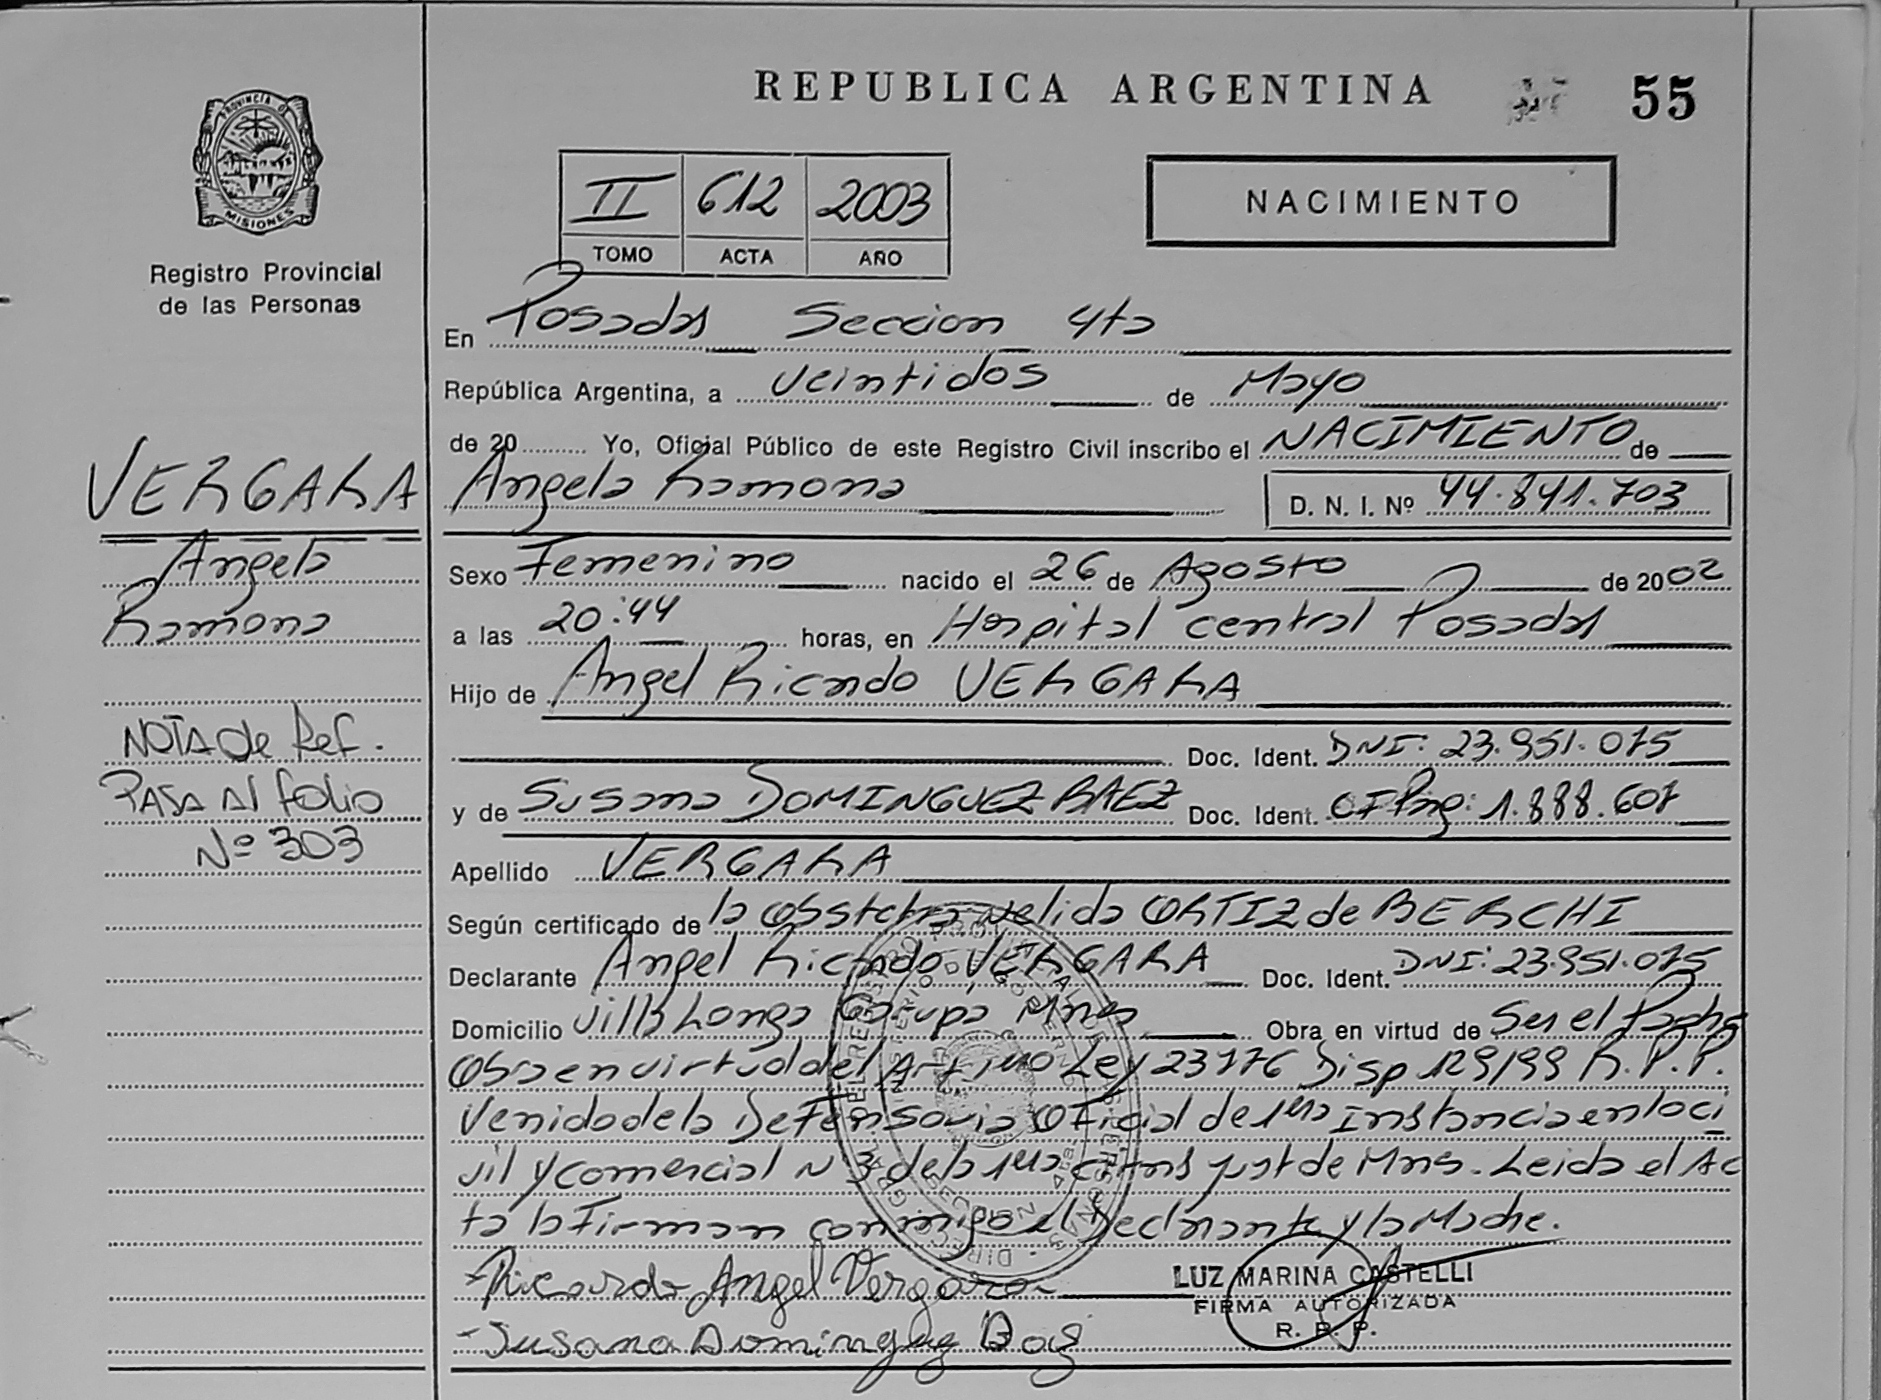 REPUBLICA ARGENTINA 55
PROVINCIA DE
MISIONES
Registro Provincial
de las Personas
II 612 2003
TOMO ACTA AÑO
NACIMIENTO
En Posadas Seccion 4ta
República Argentina, a veintidos de Mayo
de 20 Yo, Oficial Público de este Registro Civil inscribo el NACIMIENTO de
VERGARA
Angela
Ramona
NOTA de Ref.
PASA Al folio
Nº 303
Angela Ramona D. N. I. Nº 44.841.703
Sexo Femenino nacido el 26 de Agosto de 2002
a las 20:44 horas, en Hospital central Posadas
Hijo de Angel Ricardo VERGARA
Doc. Ident. DNI: 23.951.075
y de Susana DOMINGUEZ BAEZ Doc. Ident. CI Prg: 1.888.607
Apellido VERGARA
Según certificado de la Obstetra Nelida ORTIZ de BERCHI
Declarante Angel Ricardo VERGARA Doc. Ident. DNI: 23.951.075
Domicilio Villa Longa Garupa Mnes Obra en virtud de Ser el Padre
Obra en virtud del Art Ley 23776 Disp 129/99 R.P.P.
Venido de la Defensoria Oficial de 1era Instancia en lo Ci
vil y comercial Nº 3 de la 1era Cirns Just de Mns. Leida el Ac
ta la Firman conmigo el Declarante y la Madre.
Ricardo Angel Vergara
Susana Dominguez Baez
LUZ MARINA CASTELLI
FIRMA AUTORIZADA
R. P. P.